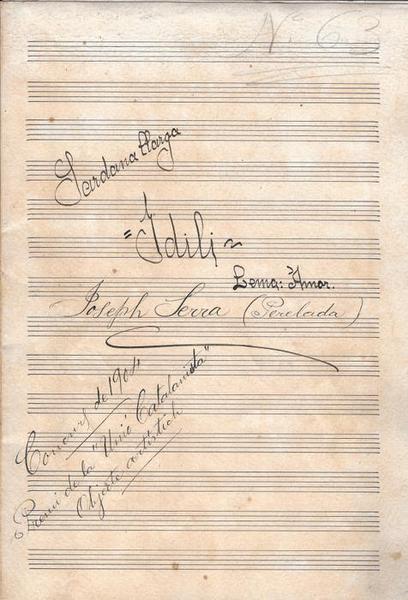 Nº 63
Sardana llarga
"Idili"
Lema: Amor.
Joseph Serra (Perelada)
Concurs de 1904
Premi de la "Unió Catalanista"
Objecte artístich